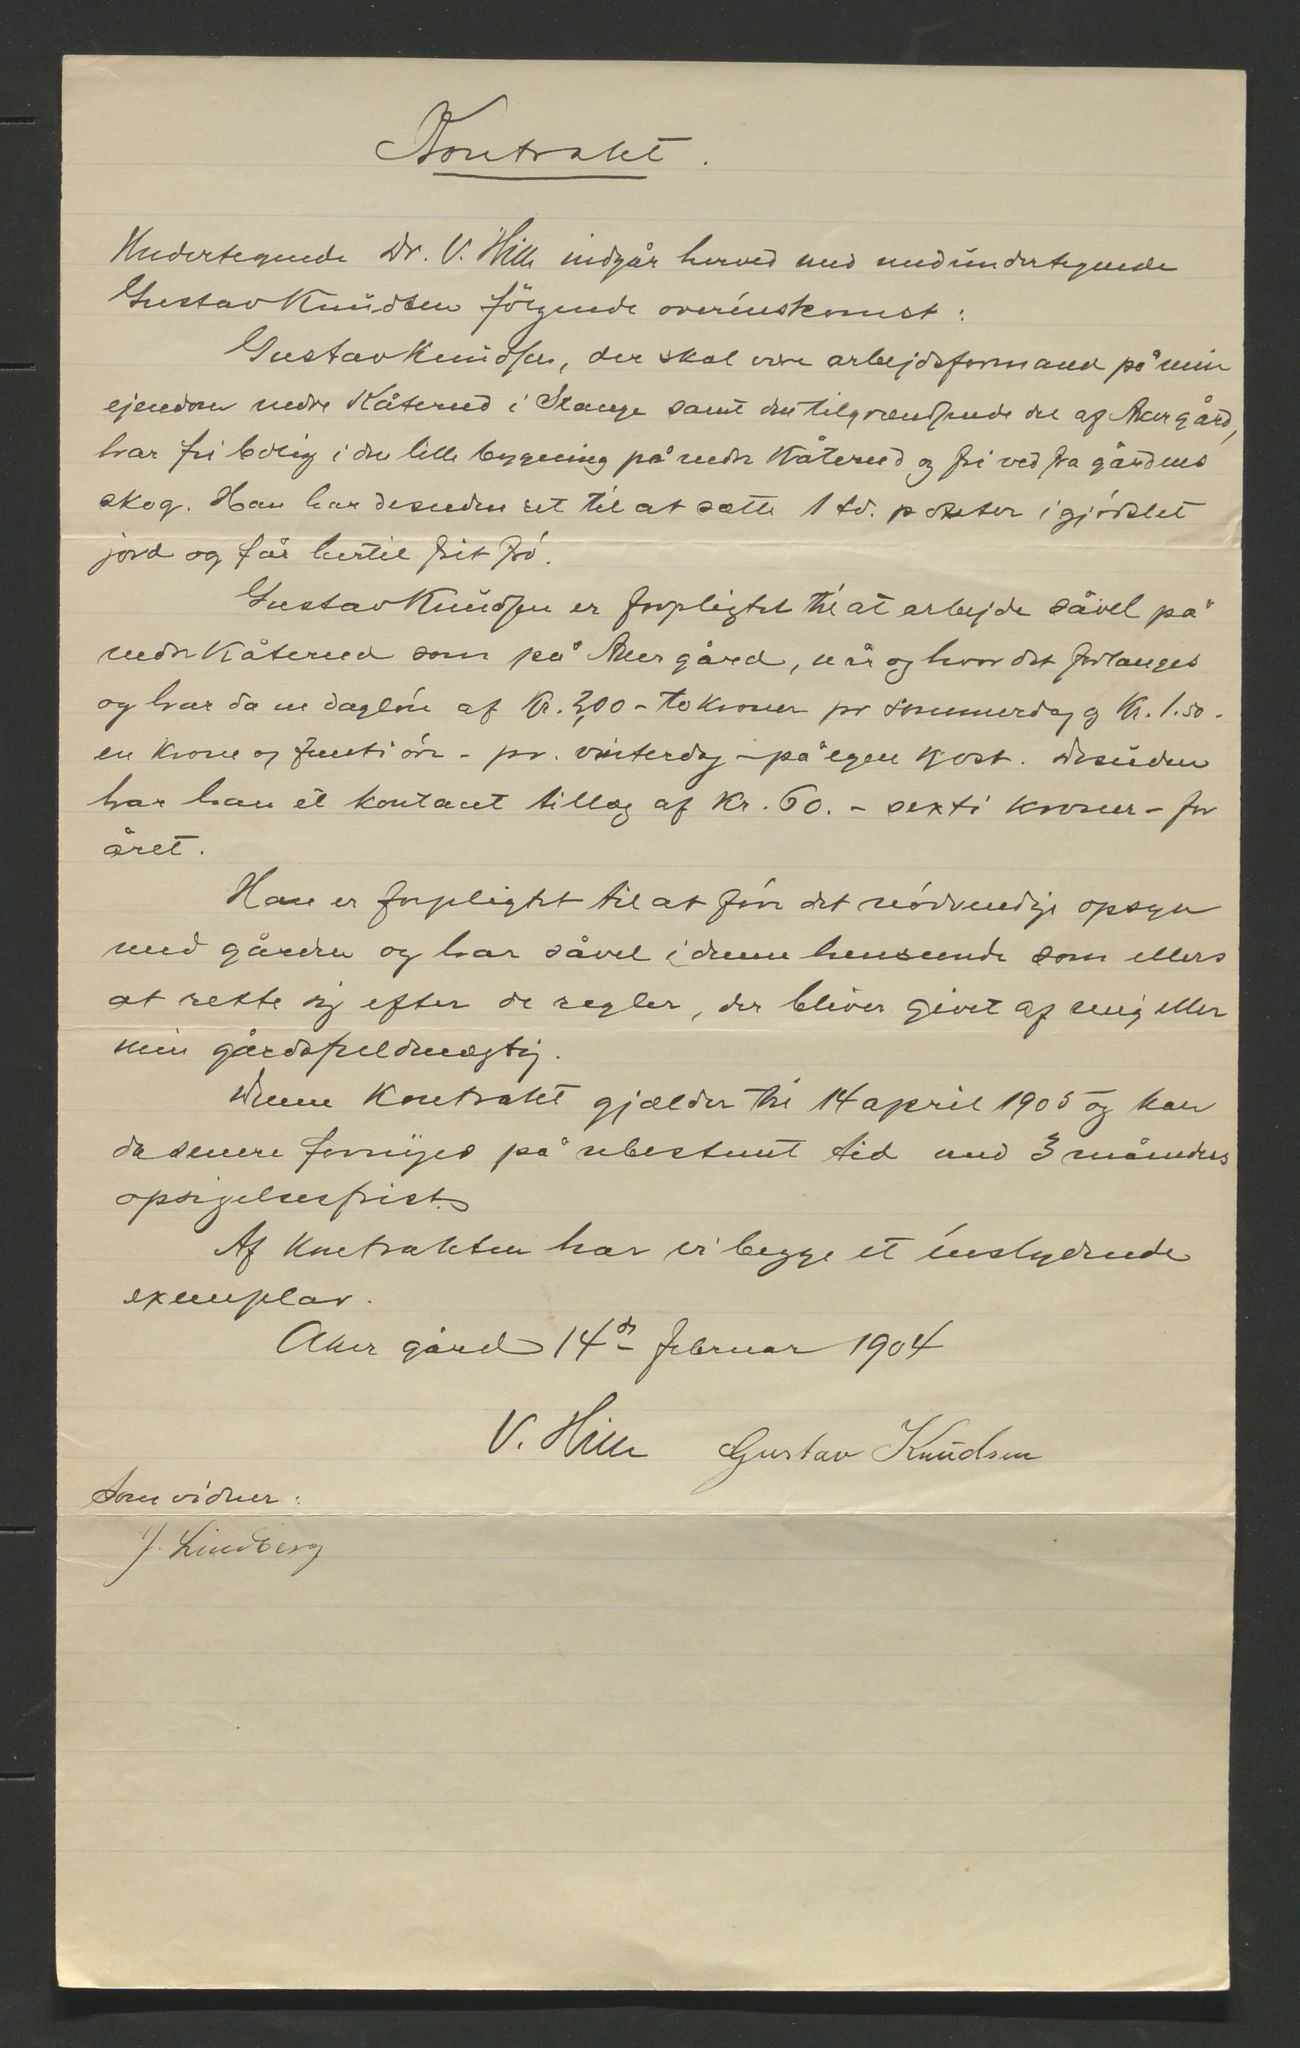 Kontrakt.
Undertegnede Dr. V. Hille indgår herved med medundertegnede
Gustav Knudsen følgende overenskomst:
Gustav Knudsen, der skal være arbejdsformand på min
ejendom nedre Kåterud i Stange samt den tilgrændsende del af Aker gård,
har fri bolig i den lille bygning på nedre Kåterud og fri ved fra gårdens
skog. Han har desuden ret til at sætte 1 td. poteter i gjødslet
jord og får hertil frit frø.
Gustav Knudsen er forpligtet til at arbejde såvel på
nedre Kåterud som på Aker gård, når og hvor det forlanges
og har da en dagløn af Kr. 2,00 - to kroner pr sommerdag og Kr. 1.50 -
en krone og femti øre - pr. vinterdag - på egen kost. Desuden
har han et kontant tillæg af Kr. 60. - sexti kroner - for
året.
Han er forpligtet til at føre det nødvendige opsyn
med gården og har såvel i denne henseende som ellers
at rette sig efter de regler, der bliver givet af mig eller
min gårdsfuldmægtig.
Denne kontrakt gjælder til 14 april 1905 og kan
da senere fornyes på ubestemt tid med 3 måneders
opsigelsesfrist.
Af kontrakten har vi begge et enslydende
exemplar.
Aker gård 14de februar 1904
V. Hille Gustav Knudsen
Som vidner:
J. Lindberg